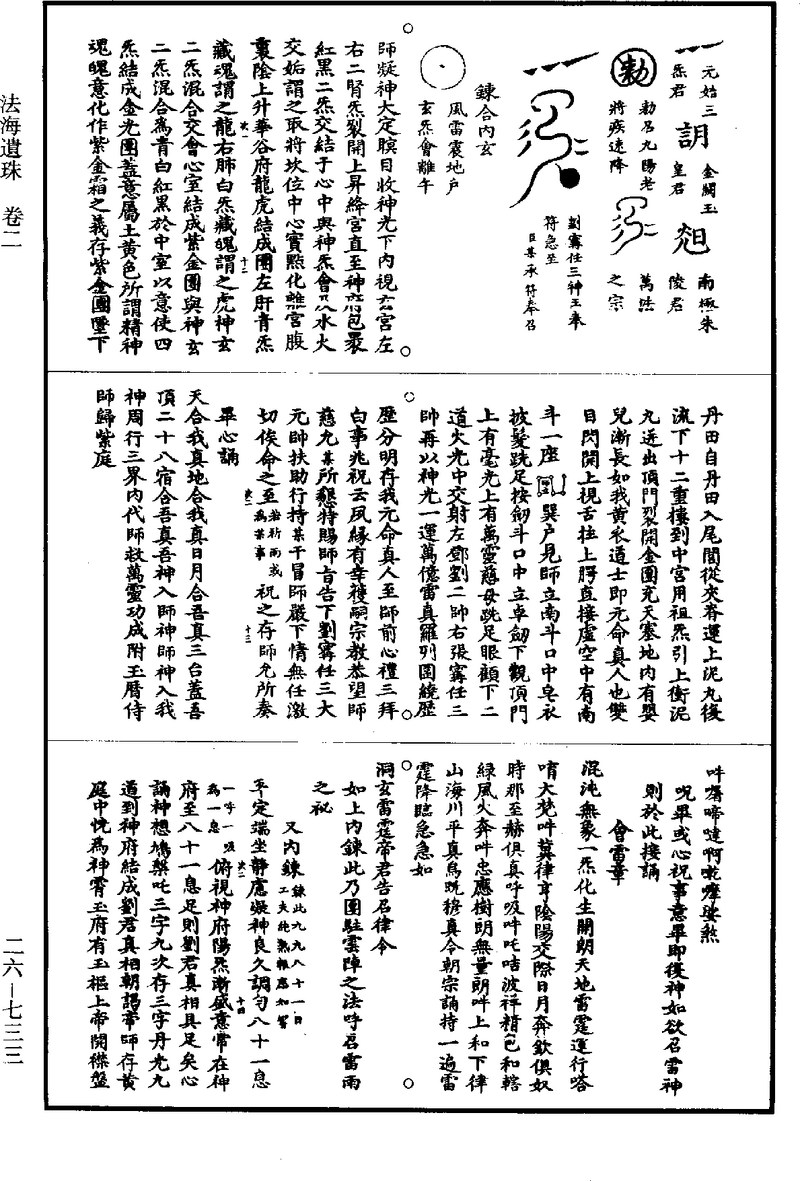 元始三
炁君
金闕玉
皇君
南極朱
陵君
勑
勑召九陽老
將疾速降
萬法
之宗
劉𩆜任三神王奉
符急至
臣某承符奉召
鍊合內玄
風雷震地戶
玄炁會離午
師凝神大定瞑目收神光下內視玄宮左
右二腎炁裂開上昇絳宮直至神府包裹
紅黑二炁交結于心中與神炁會合水火
交姤謂之取將坎位中心實點化離宮腹
裏陰上升華谷府龍虎結成團左肝青炁
藏魂謂之龍右肺白炁藏魄謂之虎神玄
二炁混合交會心室結成紫金團與神玄
二炁混合為青白紅黑於中室以意使四
炁結成金光團蓋意屬土黃色所謂精神
魂魄意化作紫金霜之義存紫金團墜下
丹田自丹田入尾閭從夾脊運上泥丸後
流下十二重樓到中宮用祖炁引上衝泥
丸迸出頂門裂開金團充天塞地內有嬰
兒漸長如我黃衣道士即元命真人也雙
目閃開上視舌拄上腭直接虛空中有南
斗一座巽戶見師立南斗口中皂衣
披髮跣足按劒斗口中立卓劒下觀頂門
上有毫光上有萬靈慈母跣足眼顧下二
道火光中交射左鄧劉二帥右張𩆜任三
帥再以神光一運萬億雷真羅列圍繞歷
歷分明存我元命真人至師前心禮三拜
白事兆祝云夙緣有幸獲嗣宗教恭望師
慈允某所懇特賜師旨告下劉𩆜任三大
元帥扶助行持某干冒師嚴下情無任激
切俟命之至若祈雨或為某事祝之存師允所奏
畢心誦
天合我真地合我真日月合吾真三台蓋吾
頂二十八宿合吾真吾神入師神師神入我
神周行三界內代師救萬靈功成附玉曆侍
師歸紫庭
吽㗸啼噠啊𠹌㗬娑煞
呪畢或心祝事意畢即復神如欲召雷神
則於此接誦
會雷章
混沌無象一炁化生開朗天地雷霆運行嗒
唷大梵吽莫律亨陰陽交際日月奔欽俱奴
時那至赫俱真呼吸吽吒咭波祥精皀和轄
綠風火奔吽忠應樹明無量朗吽上和下律
山海川平真鳥旣穆真令朝宗誦持一遍雷
霆降臨急急如
洞玄雷霆帝君告召律令
如上內鍊此乃團駐雲陣之法呼召雷雨
之祕
又內鍊鍊此九九八十一日工夫純熟報應如響
平定端坐靜慮凝神良久調勻八十一息
一呼一吸為一息俯視神府陽炁漸盛意常在神
府至八十一息足則劉君真相具足矣心
誦神想鳩槃吒三字九次存三字丹光九
道到神府結成劉君真相朝謁帝師存黃
庭中恍為神霄玉府有玉樞上帝開襟盤
法海遺珠　卷二
二六―七三三